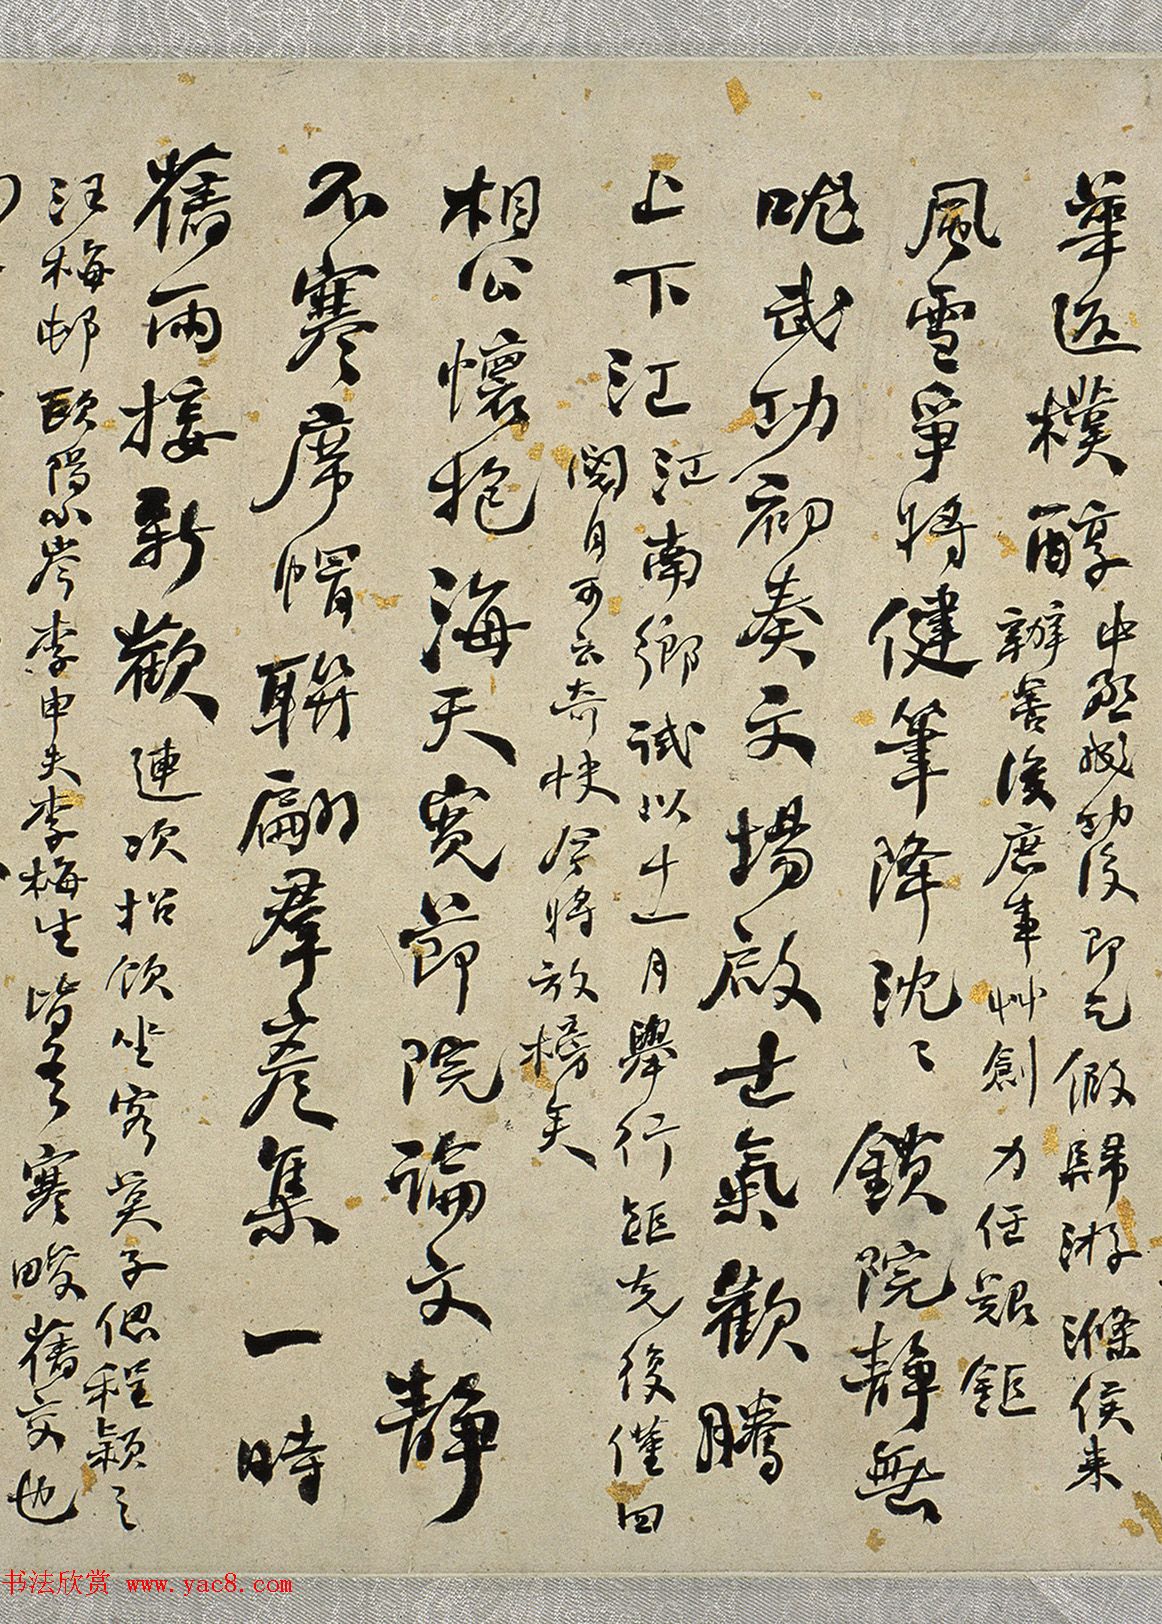 華返樸醇
中丞成功後即乞假歸游滌侯来
辦善後庶事艸創力任艱鉅
風雪爭將健筆降沈〻鎖院靜無
哤武功初奏文場啟士氣歡騰
上下江
江南鄉試以十一月舉行距克復僅四
閱月可云奇快今將放榜矣
相公懷抱海天寬節院論文靜
不寒席帽聯翩羣彥集一時
舊雨接新歡
連次招飲坐客莫子偲程穎之
汪梅邨歐陽小岑李申夫李梅生皆吾寒畯舊交也
书法欣赏 www.yac8.com